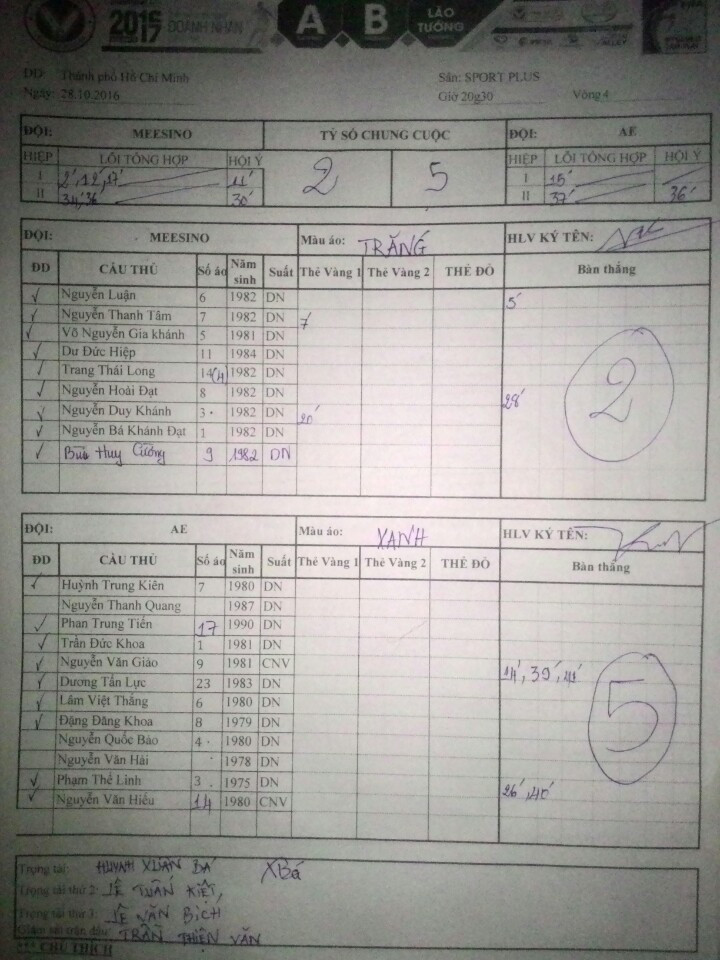 2016 2017 DOANH NHÂN A B LÃO TƯỚNG
ĐĐ: Thành phố Hồ Chí Minh Sân: SPORT PLUS
Ngày: 28.10.2016 Giờ 20g30 Vòng 4
ĐỘI: MEESINO TỶ SỐ CHUNG CUỘC ĐỘI: AE
HIỆP LỖI TỔNG HỢP HỘI Ý 2 5 HIỆP LỖI TỔNG HỢP HỘI Ý
I 2', 12', 17' 11' I 15'
II 34' 36' 30' II 37' 36'
ĐỘI: MEESINO Màu áo: TRẮNG HLV KÝ TÊN:
ĐD CẦU THỦ Số áo Năm sinh Suất Thẻ Vàng 1 Thẻ Vàng 2 THẺ ĐỎ Bàn thắng
Nguyễn Luận 6 1982 DN 5'
Nguyễn Thanh Tâm 7 1982 DN 7'
Võ Nguyễn Gia khánh 5 1981 DN
Dư Đức Hiệp 11 1984 DN
Trang Thái Long 14 (4) 1982 DN
Nguyễn Hoài Đạt 8 1982 DN 28'
Nguyễn Duy Khánh 3 1982 DN 20'
Nguyễn Bá Khánh Đạt 1 1982 DN
Bùi Huy Cường 9 1982 DN
2
ĐỘI: AE Màu áo: XANH HLV KÝ TÊN:
ĐD CẦU THỦ Số áo Năm sinh Suất Thẻ Vàng 1 Thẻ Vàng 2 THẺ ĐỎ Bàn thắng
Huỳnh Trung Kiên 7 1980 DN
Nguyễn Thanh Quang 1987 DN
Phan Trung Tiến 17 1990 DN
Trần Đức Khoa 1 1981 DN
Nguyễn Văn Giáo 9 1981 CNV 14', 39', 41'
Dương Tấn Lực 23 1983 DN
Lâm Việt Thắng 6 1980 DN
Đặng Đăng Khoa 8 1979 DN
Nguyễn Quốc Bảo 4 1980 DN
Nguyễn Văn Hải 1978 DN
Phạm Thế Linh 3 1975 DN
Nguyễn Văn Hiếu 14 1980 CNV 26', 40'
5
Trọng tài: HUỲNH XUÂN BÁ XBá
Trọng tài thứ 2: LÊ TUẤN KIỆT,
Trọng tài thứ 3: LÊ VĂN BÍCH
Giám sát trận đấu: TRẦN THIỆN VĂN
*** CHÚ THÍCH